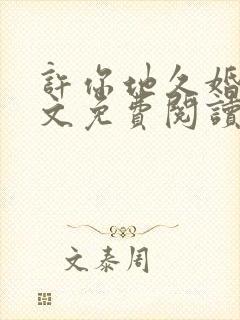 許你地久婚
文免費閱讀
文泰周